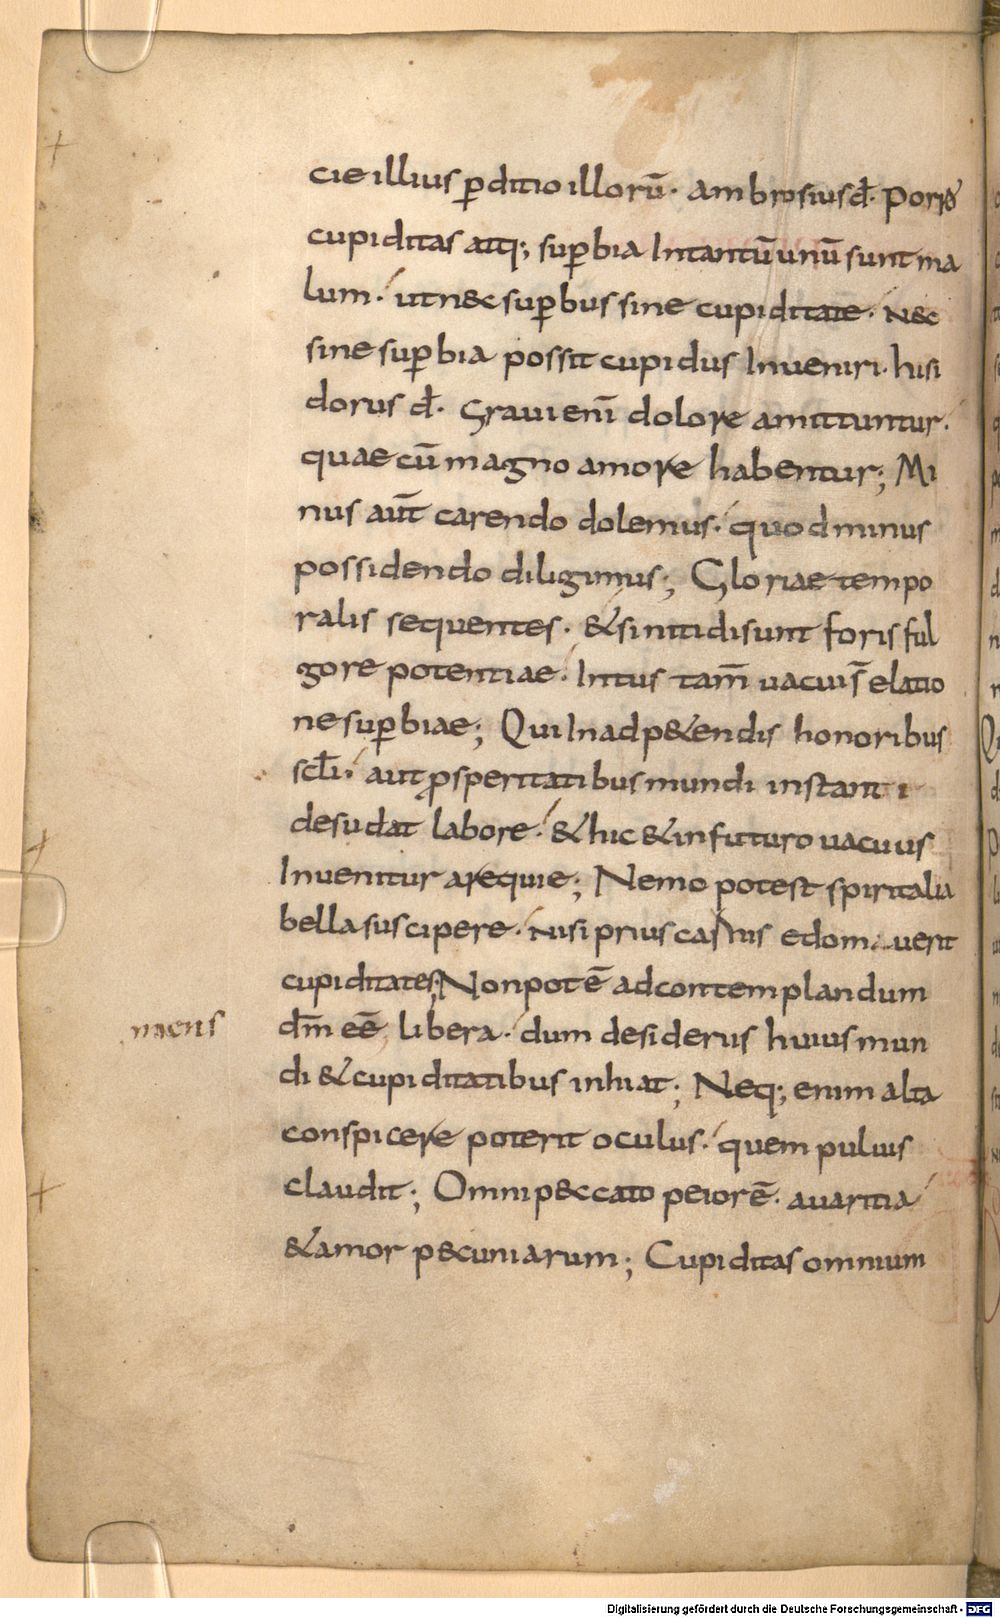 cie illius ꝑditio illorū· ambrosius dꝉ· Porro
cupiditas atq; suꝑbia Intantū unū sunt ma
lum· ut n&c suꝑbus sine cupiditate· N&c
sine suꝑbia possit cupidus Inueniri· hisi
dorus dꝉ· Graui enī dolore amittuntur·
quae cū magno amore habentur; Mi
nus aūt carendo dolemus· quod minus
possidendo diligimus; Gloriae tempo
ralis sequentes· & si nitidi sunt foris ful
gore potentiae· Intus tam̄ uacui s̄ elatio
ne suꝑbiae; Qui In adp&endis honoribus
scꝉi· aut ꝓsperitatibus mundi instant i
desudat labore· & hic & in futuro uacuus
Inuenitur a requie; Nemo potest spiritalia
bella suscipere· Nisi prius carnis edomauerit
cupiditates; Non pot ē ad contemplandum
dm̄ eē libera· dum desideriis huius mun
mens
di & cupiditatibus inhiat; Neq; enim alta
conspicere poterit oculus· quem puluis
claudit; Omni p&ccato peior ē· auaritia
& amor p&cuniarum; Cupiditas omnium
Digitalisierung gefördert durch die Deutsche Forschungsgemeinschaft - DFG